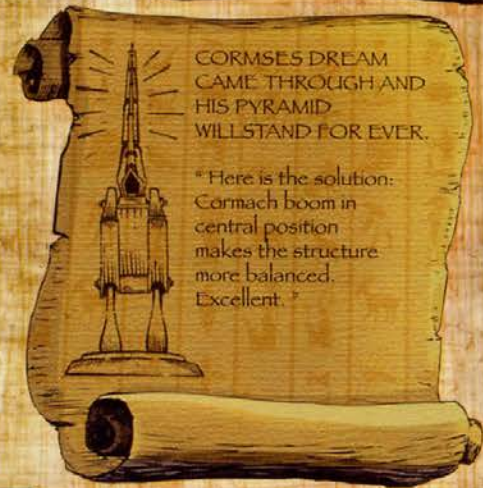 CORMSES DREAM
CAME THROUGH AND
HIS PYRAMID
WILLSTAND FOR EVER.
“ Here is the solution:
Cormach boom in
central position
makes the structure
more balanced.
Excellent. ”